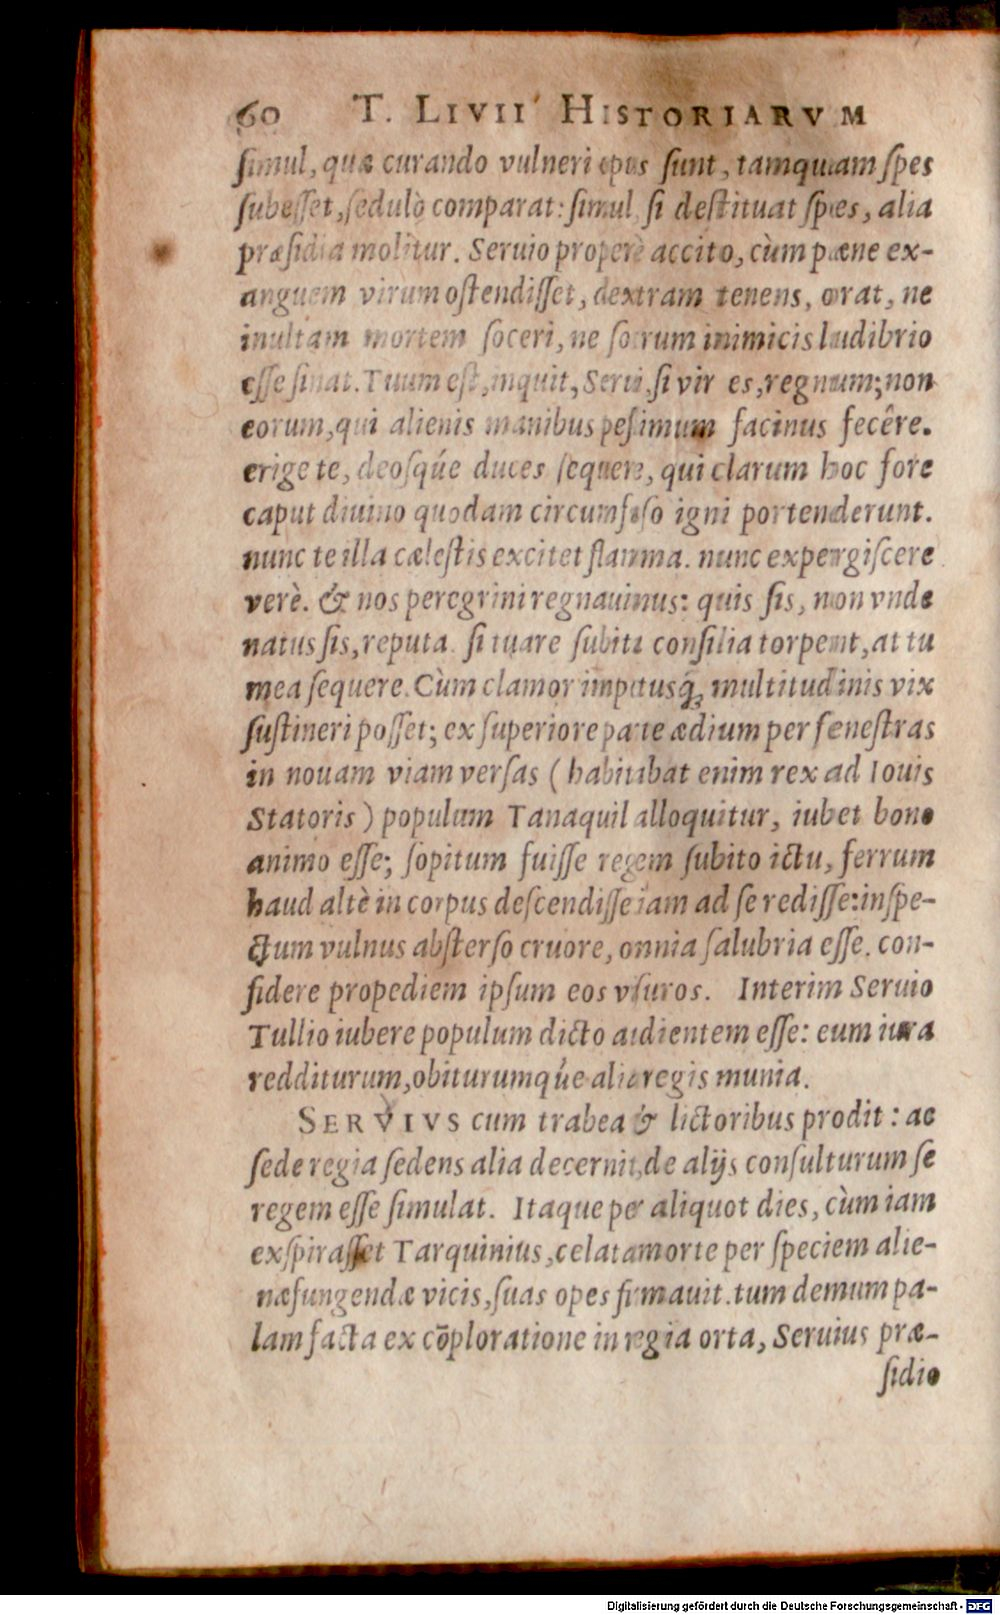 60 T. LIVII HISTORIARVM
simul, quæ curando vulneri opus sunt, tamquam spes
subesset, sedulò comparat: simul, si destituat spes, alia
præsidia molitur. Seruio properè accito, cùm pæne ex-
anguem virum ostendisset, dextram tenens, orat, ne
inultam mortem soceri, ne socrum inimicis ludibrio
esse sinat. Tuum est, inquit, Serui, si vir es, regnum; non
eorum, qui alienis manibus pessimum facinus fecêre.
erige te, deosqúe duces sequere, qui clarum hoc fore
caput diuino quodam circumfuso igni portenderunt.
nunc te illa cælestis excitet flamma. nunc expergiscere
verè. & nos peregrini regnauimus: quis sis, non vnde
natus sis, reputa. si tua re subita consilia torpent, at tu
mea sequere. Cùm clamor impetusq́; multitudinis vix
sustineri posset; ex superiore parte ædium per fenestras
in nouam viam versas (habitabat enim rex ad Iouis
Statoris) populum Tanaquil alloquitur, iubet bono
animo esse; sopitum fuisse regem subito ictu, ferrum
haud altè in corpus descendisse iam ad se redisse: inspe-
ctum vulnus absterso cruore, omnia salubria esse. con-
fidere propediem ipsum eos vsuros. Interim Seruio
Tullio iubere populum dicto audientem esse: eum iura
redditurum, obiturumqúe alia regis munia.
SERVIVS cum trabea & lictoribus prodit: ac
sede regia sedens alia decernit, de alijs consulturum se
regem esse simulat. Itaque per aliquot dies, cùm iam
exspirasset Tarquinius, celata morte per speciem alie-
næ fungendæ vicis, suas opes firmauit. tum demum pa-
lam facta ex cõploratione in regia orta, Seruius præ-
sidio
Digitalisierung gefördert durch die Deutsche Forschungsgemeinschaft - DFG